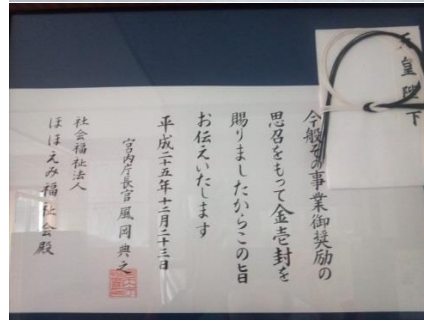 天皇陛下
今般その事業御奨励の
思召をもって金壱封を
賜りましたからこの旨
お伝えいたします
平成二十五年十二月二十三日
宮内庁長官風岡典之
社会福祉法人
ほほえみ福祉会殿